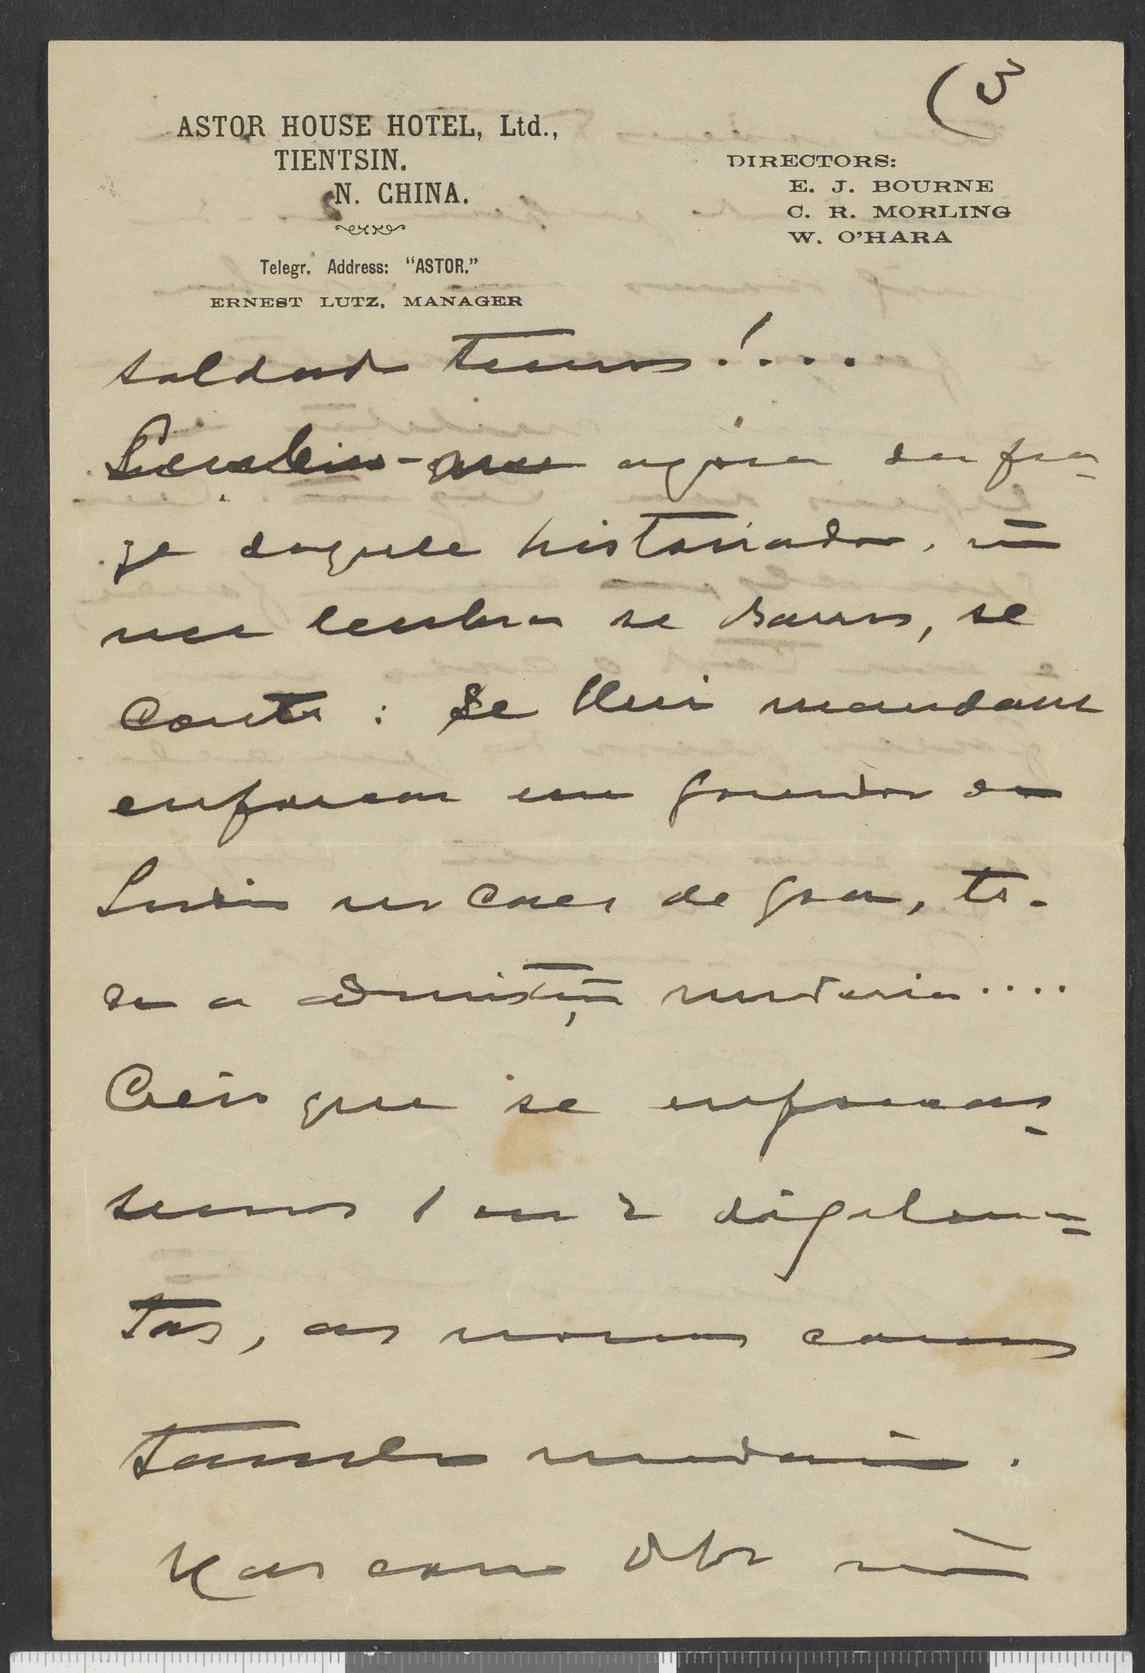 (3
ASTOR HOUSE HOTEL, Ltd.,
TIENTSIN.
N. CHINA.
Telegr. Address: "ASTOR."
ERNEST LUTZ, MANAGER
DIRECTORS:
E. J. BOURNE
C. R. MORLING
W. O'HARA
soldado temos!....
Lembro-me agora da fra-
ze daquele historiador, não
me lembra se Barros, se
Couto: Se Elrei mandasse
enforcar um governador da
India no caes de Goa, to-
da a administração mudaria....
Creio que se enforcas-
semos 1 ou 2 diploma-
tas, as nossas cousas
tambem mudariam.
Mas como não